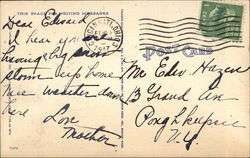 THIS SPACE FOR WRITING MESSAGES
POST CARD
Dear Edward
I hear you are
having big snow
storm up home
Nice weather down
here Love
Mother
Mr Edw. Hazen
13 Grand Av
Poughkeepsie
N.Y.